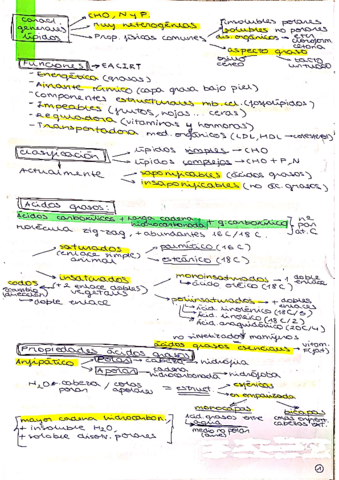 caract. generales lípidos
→ CHO, N y P
→ muy heterogéneos
→ Prop. físicas comunes
insolubles polares
solubles no polares
dis. orgánicos
aspecto graso
Funciones → EACIRT
- Energética (grasas)
- Aislante térmico (capa grasa bajo piel)
- Componentes estructurales mb. cel. (fosfolípidos)
- Impeables (frutos, hojas... ceras)
- Reguladora (vitaminas y hormonas)
- Transportadora med. orgánicos (LDL, HDL →
Clasificación
→ lípidos simples → CHO
→ lípidos complejos → CHO + P, N
Actualmente
→ saponificables (ácidos grasos)
→ insaponificables (no ác. grasos)
Ácidos grasos:
ácidos carboxílicos + larga cadena hidrocarbonada + g. carboxílico
nº par át. C
molécula zig-zag, + abundantes 16 C / 18 C
saturados (enlace simple) animal
→ palmítico (16 C)
→ esteárico (18 C)
insaturados (+ 2 enlace dobles) vegetales
codos
→ doble enlace
monoinsaturados → 1 doble enlace
↳ ácido oleico (18 C)
poliinsaturados → + dobles enlaces
↳ ácid. linolénico (18 C / 3)
↳ ácid. linoleico (18 C / 2)
↳ ácid. araquidónico (20 C / 4)
no sinvetizados mamíferos
ácidos grasos esenciales
Propiedades ácidos grasos
Anfipático
→ Polar → cabeza → hidrófila
→ Apolar → cadena hidrocarbonada → hidrófoba
H₂O + cabeza / colas
polar apolares
= estruct
→ esféricas
→ en empalizada
monocapas
bicapas
ácid. grasos entre agua
mayor cadena hidrocarbon.
+ insoluble H₂O
+ soluble disolv. polares
1